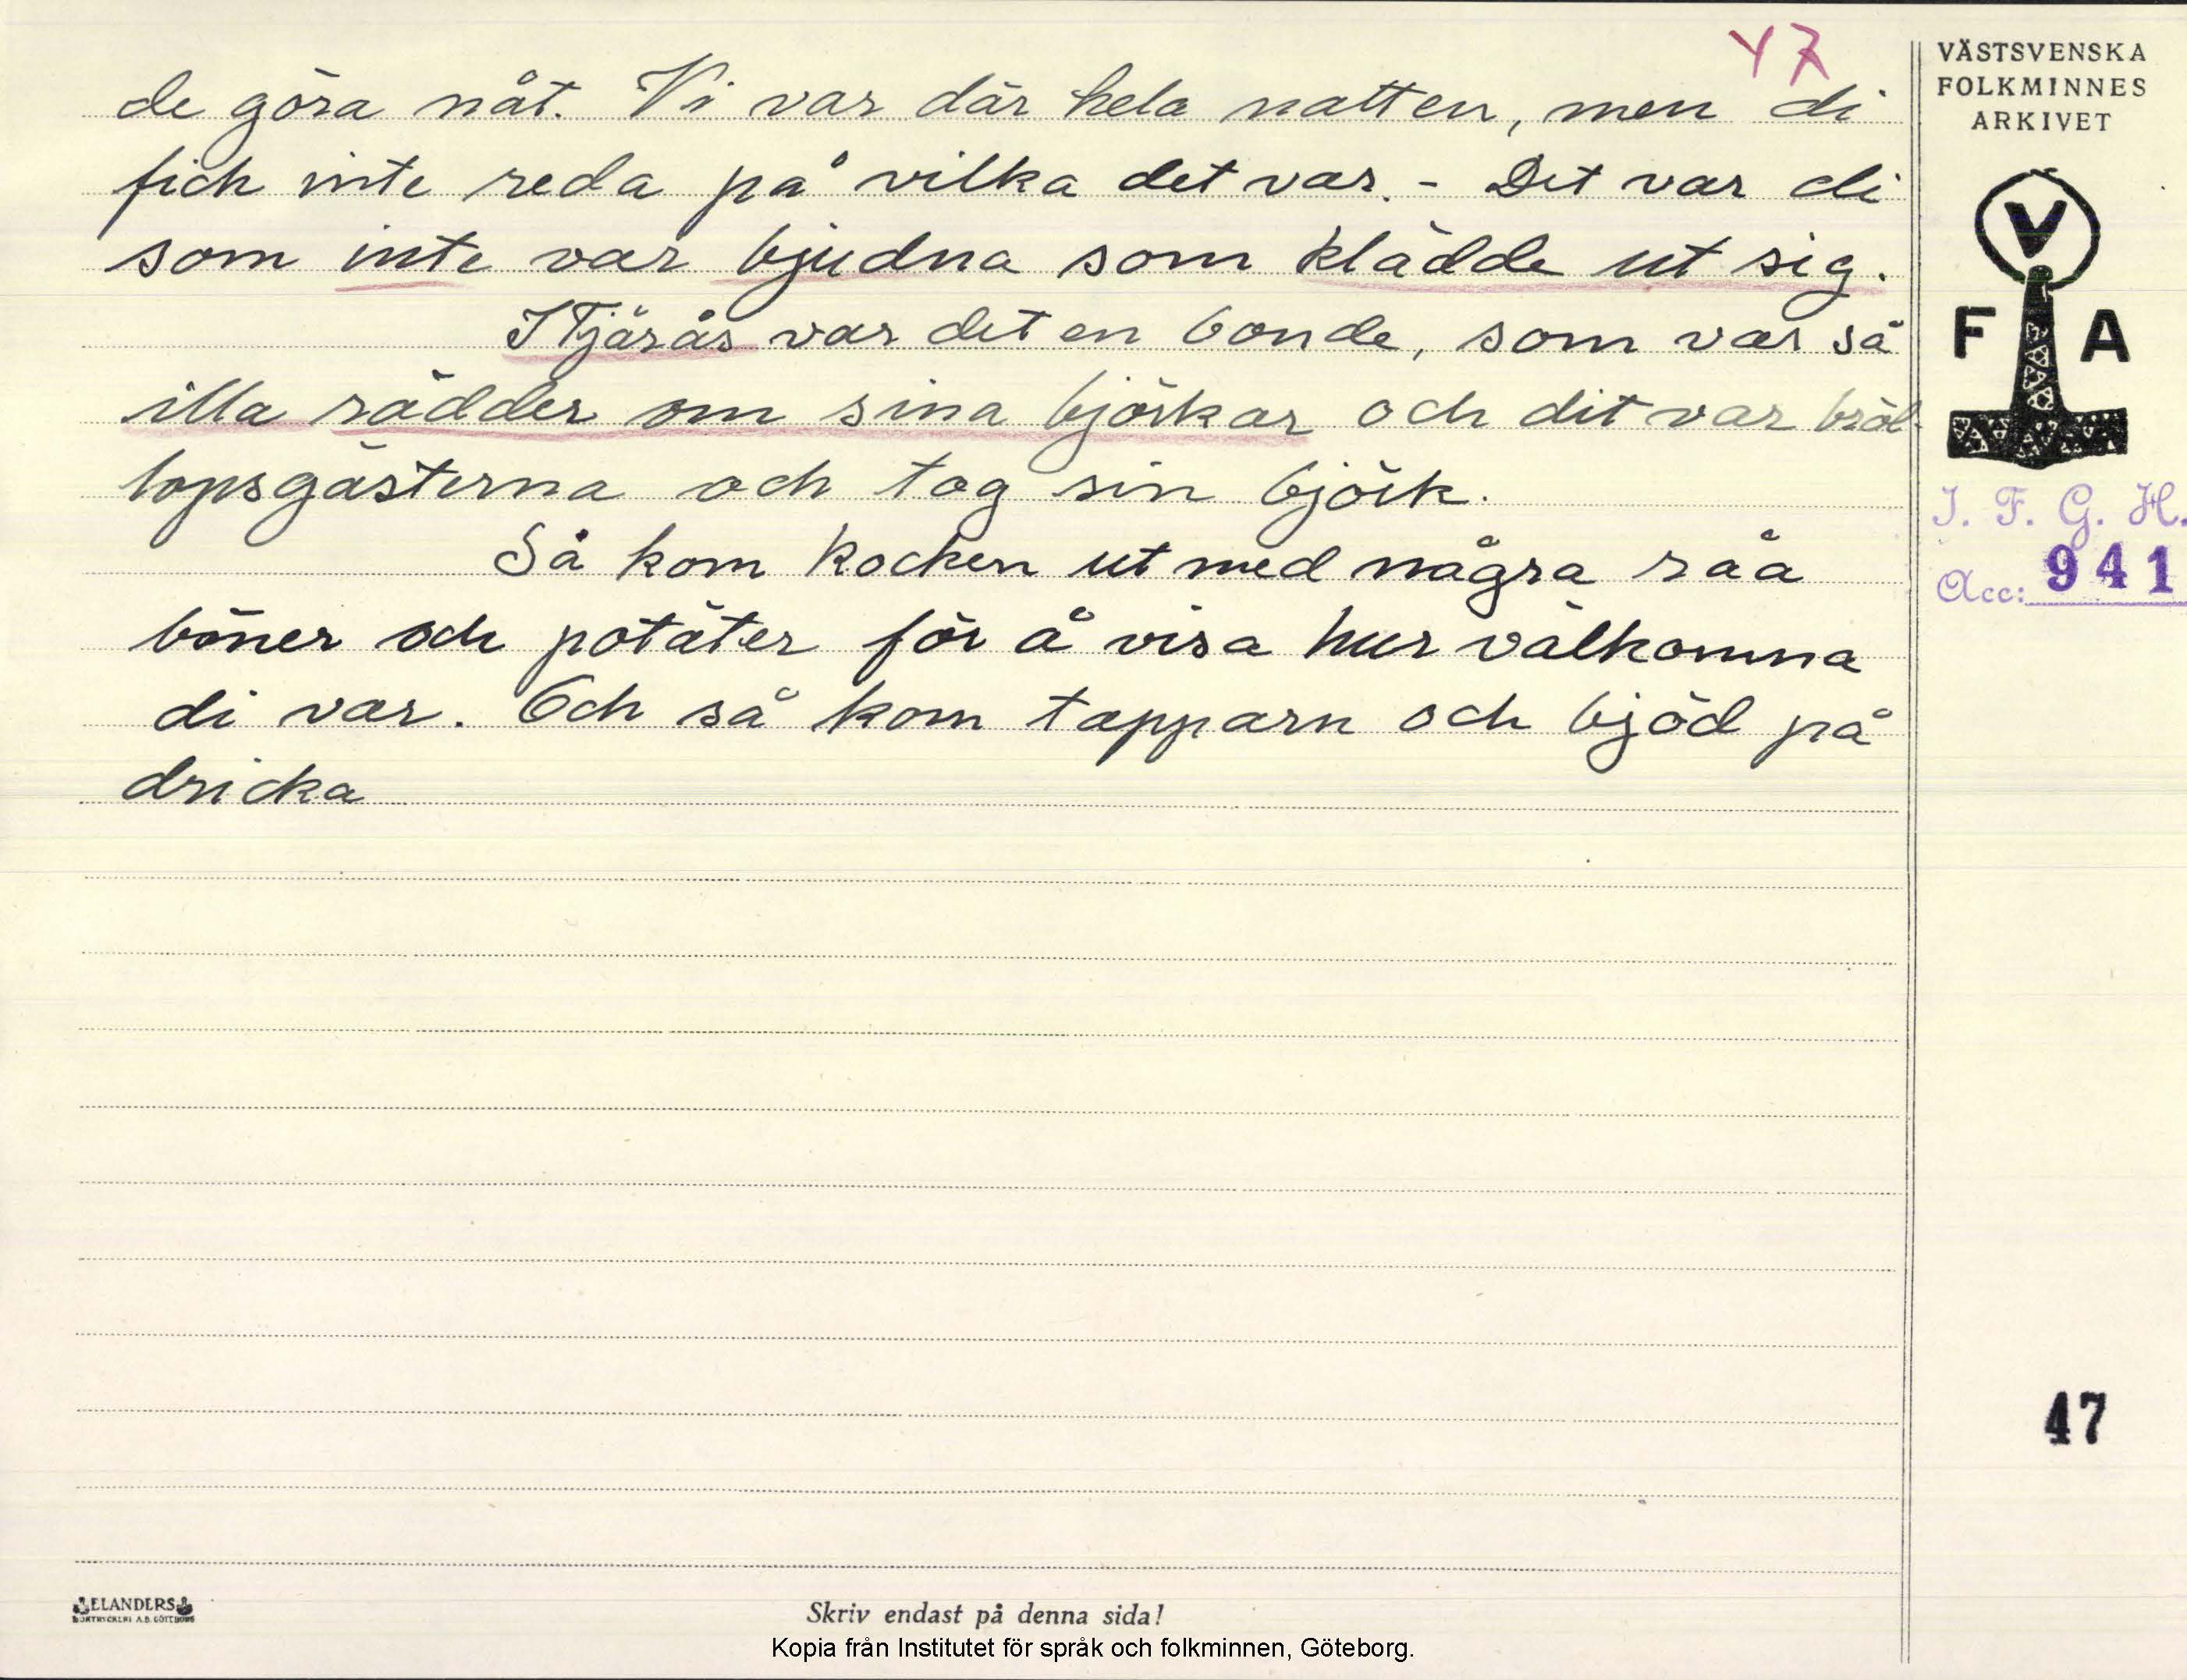 47
de göra nåt. Vi var där hela natten, men di
fick inte reda på vilka det var. - Det var di
som inte var bjudna som klädde ut sig.
I Tjärås var det en bonde, som var så
illa rädder om sina björkar och dit var bröl-
lopsgästerna och tog sin björk.
Så kom kocken ut med några råa
böner och potäter för å visa hur välkomna
di var. Och så kom tapparn och bjöd på
dricka
VÄSTSVENSKA
FOLKMINNES
ARKIVET
V
F A
I. F. G. H.
Acc: 941
47
ELANDERS
BOKTRYCKERI A.B. GÖTEBORG
Skriv endast på denna sida!
Kopia från Institutet för språk och folkminnen, Göteborg.